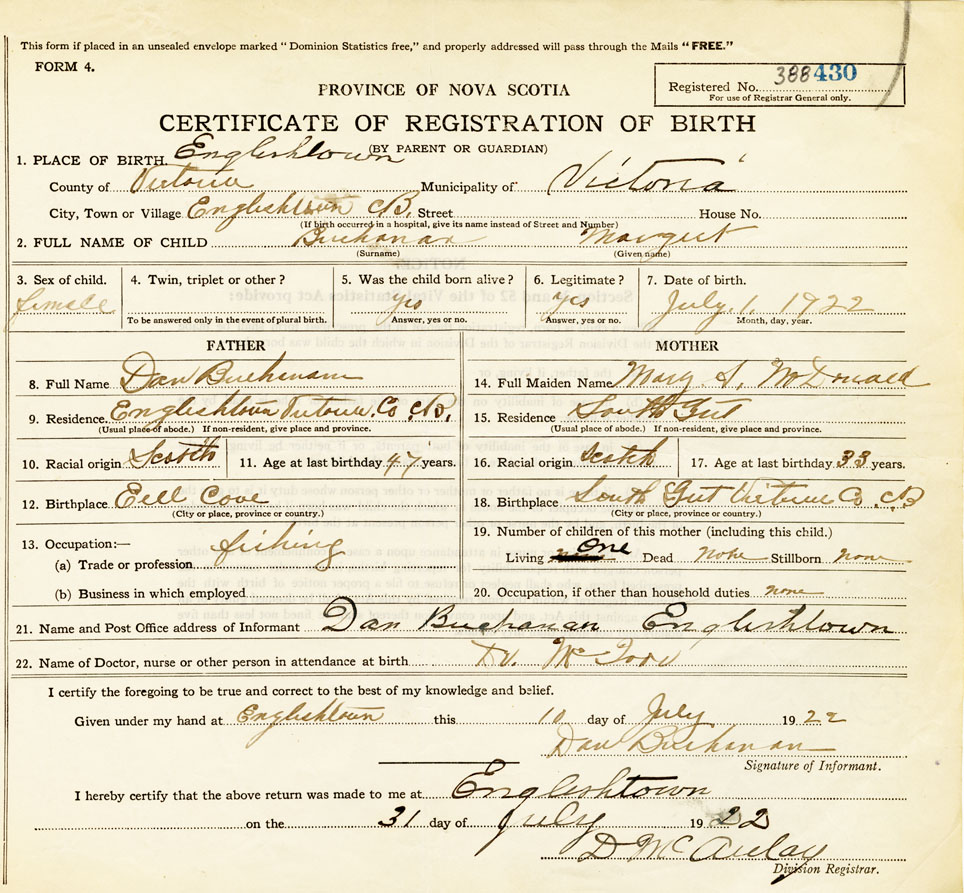 This form if placed in an unsealed envelope marked "Dominion Statistics free," and properly addressed will pass through the Mails "FREE."
FORM 4.
Registered No. 388430
For use of Registrar General only.
PROVINCE OF NOVA SCOTIA
CERTIFICATE OF REGISTRATION OF BIRTH
(BY PARENT OR GUARDIAN)
1. PLACE OF BIRTH. Englishtown
County of Victoria Municipality of Victoria
City, Town or Village Englishtown CB. Street House No.
(If birth occurred in a hospital, give its name instead of Street and Number)
2. FULL NAME OF CHILD Buchanan Margret
(Surname) (Given name)
3. Sex of child. 4. Twin, triplet or other? 5. Was the child born alive? 6. Legitimate? 7. Date of birth.
female yes yes July. 1. 1922
To be answered only in the event of plural birth. Answer, yes or no. Answer, yes or no. Month, day, year.
FATHER MOTHER
8. Full Name Dan Buchanan 14. Full Maiden Name Mary S. McDonald
9. Residence. Englishtown Victoria Co. CB. 15. Residence South Gut
(Usual place of abode.) If non-resident, give place and province. (Usual place of abode.) If non-resident, give place and province.
10. Racial origin Scotth 11. Age at last birthday 47 years. 16. Racial origin scotch 17. Age at last birthday 33 years.
12. Birthplace Eell Cove 18. Birthplace South Gut Victoria Co. CB
(City or place, province or country.) (City or place, province or country.)
13. Occupation:— 19. Number of children of this mother (including this child.)
(a) Trade or profession fishing Living one Dead none Stillborn none
(b) Business in which employed 20. Occupation, if other than household duties none
21. Name and Post Office address of Informant Dan Buchanan Englishtown
22. Name of Doctor, nurse or other person in attendance at birth Dr. Mc
I certify the foregoing to be true and correct to the best of my knowledge and belief.
Given under my hand at Englishtown this 10 day of July 1922
Dan Buchanan
Signature of Informant.
I hereby certify that the above return was made to me at Englishtown
on the 31 day of July 1922
D McAulay
Division Registrar.